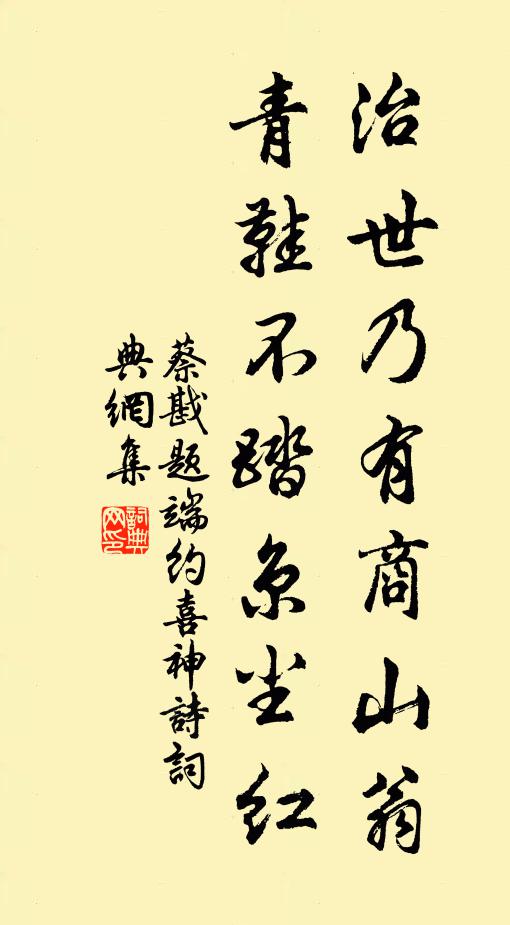 治世乃有商山翁
青鞋不踏京尘红
蔡戡题端约喜神詩詞
典網集
詞典网印